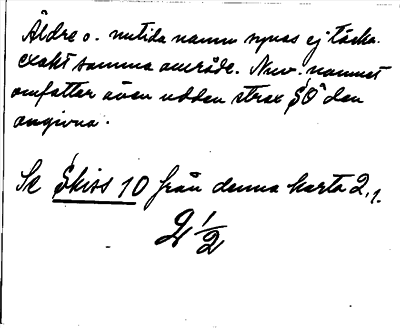 Äldre o. nutida namn synas ej täcka
exakt samma område. Nuv. namnet
omfattar även udden strax SO den
angivna.
Se Skiss 10 från denna karta 2,1.
2 1/2